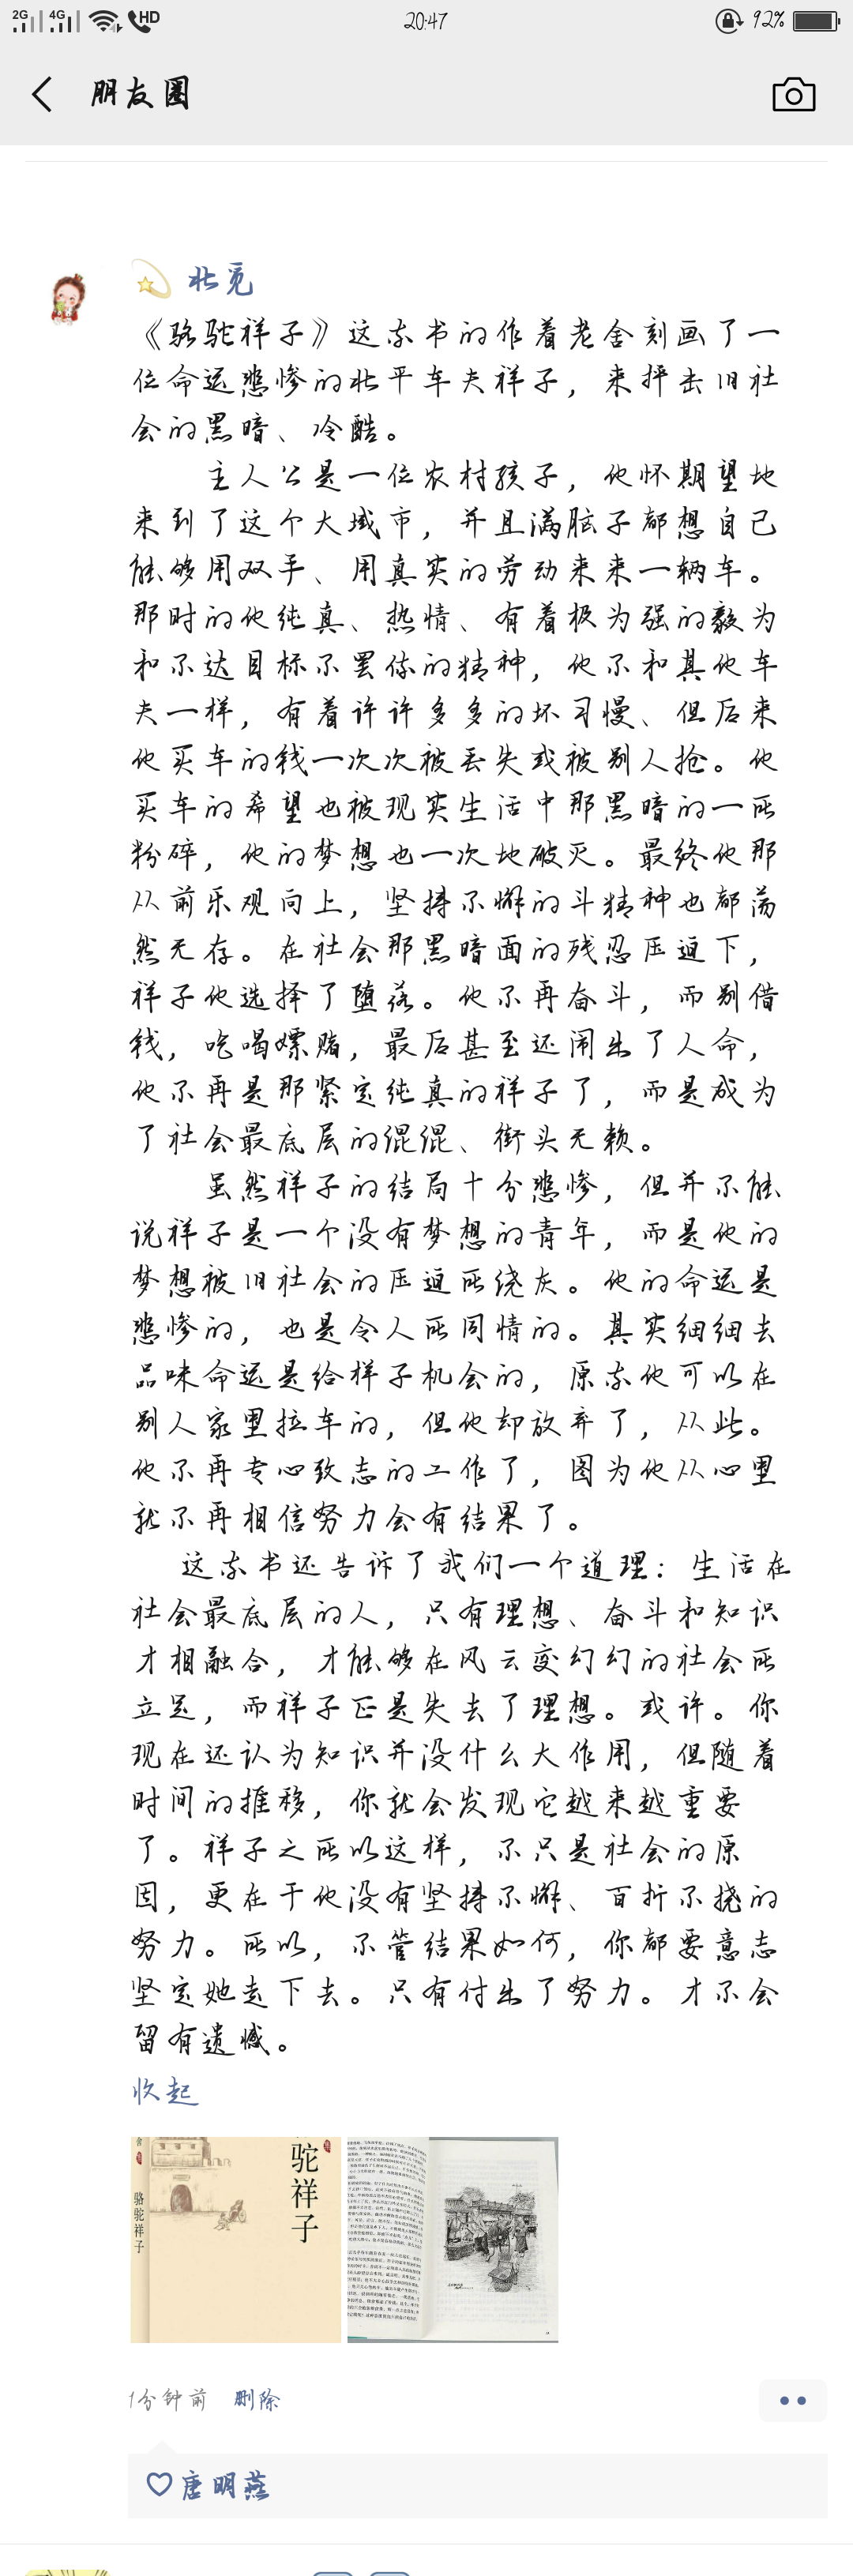 2G 4G HD 20:47 92%
朋友圈
北觅
《骆驼祥子》这本书的作着老舍刻画了一
位命运悲惨的北平车夫祥子，来抨击旧社
会的黑暗、冷酷。
主人公是一位农村孩子，他怀期望地
来到了这个大城市，并且满脑子都想自己
能够用双手、用真实的劳动来来一辆车。
那时的他纯真、热情、有着极为强的毅为
和不达目标不罢休的精神，他不和其他车
夫一样，有着许许多多的坏习慢、但后来
他买车的钱一次次被丢失或被别人抢。他
买车的希望也被现实生活中那黑暗的一所
粉碎，他的梦想也一次地破灭。最终他那
从前乐观向上，坚持不懈的斗精神也都荡
然无存。在社会那黑暗面的残忍压迫下，
祥子他选择了堕落。他不再奋斗，而别借
钱，吃喝嫖赌，最后甚至还闹出了人命，
他不再是那紧定纯真的祥子了，而是成为
了社会最底层的混混、街头无赖。
虽然祥子的结局十分悲惨，但并不能
说祥子是一个没有梦想的青年，而是他的
梦想被旧社会的压迫所绕灰。他的命运是
悲惨的，也是令人所同情的。其实细细去
品味命运是给样子机会的，原本他可以在
别人家里拉车的，但他却放弃了，从此。
他不再专心致志的工作了，图为他从心里
就不再相信努力会有结果了。
这本书还告诉了我们一个道理：生活在
社会最底层的人，只有理想、奋斗和知识
才相融合，才能够在风云变幻幻的社会所
立足，而祥子正是失去了理想。或许。你
现在还认为知识并没什么大作用，但随着
时间的推移，你就会发现它越来越重要
了。祥子之所以这样，不只是社会的原
因，更在于他没有坚持不懈、百折不挠的
努力。所以，不管结果如何，你都要意志
坚定她走下去。只有付出了努力。才不会
留有遗憾。
收起
驼祥子
骆驼祥子
1分钟前 删除
唐明燕